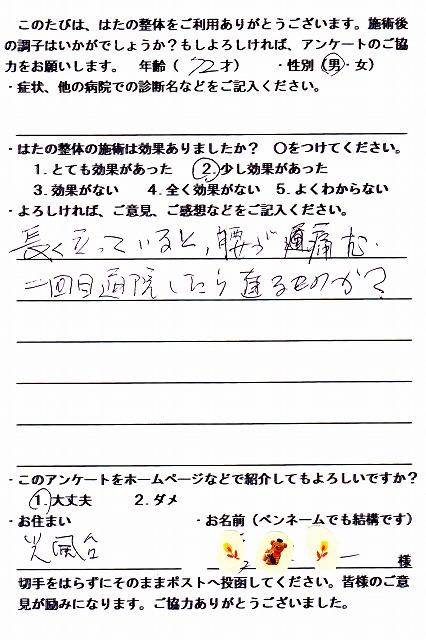 このたびは、はたの整体をご利用ありがとうございます。施術後
の調子はいかがでしょうか?もしよろしければ、アンケートのご協
力をお願いします。 年齢( 72才) ・性別(男・女)
・症状、他の病院での診断名などをご記入ください。
・はたの整体の施術は効果ありましたか? ○をつけてください。
1. とても効果があった 2. 少し効果があった
3. 効果がない 4. 全く効果がない 5. よくわからない
・よろしければ、ご意見、ご感想などをご記入ください。
長く立っていると、腰が 痛む.
二回目通院したら直るものか?
・このアンケートをホームページなどで紹介してもよろしいですか?
1. 大丈夫 2. ダメ
・お住まい ・お名前(ペンネームでも結構です)
光風台 様
切手をはらずにそのままポストへ投函してください。皆様のご意
見が励みになります。ご協力ありがとうございました。